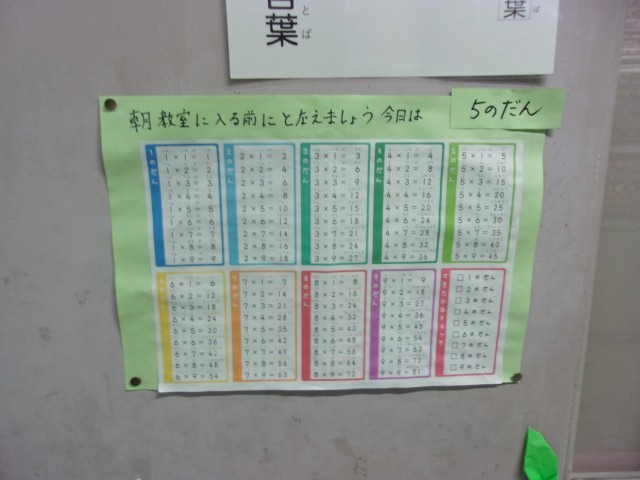 言葉
とば
葉
ば
朝教室に入る前にとなえましょう今日は
5のだん
1のだん
1×1= 1
1×2= 2
1×3= 3
1×4= 4
1×5= 5
1×6= 6
1×7= 7
1×8= 8
1×9= 9
2のだん
2×1= 2
2×2= 4
2×3= 6
2×4= 8
2×5=10
2×6=12
2×7=14
2×8=16
2×9=18
3のだん
3×1= 3
3×2= 6
3×3= 9
3×4=12
3×5=15
3×6=18
3×7=21
3×8=24
3×9=27
4のだん
4×1= 4
4×2= 8
4×3=12
4×4=16
4×5=20
4×6=24
4×7=28
4×8=32
4×9=36
5のだん
5×1= 5
5×2=10
5×3=15
5×4=20
5×5=25
5×6=30
5×7=35
5×8=40
5×9=45
6のだん
6×1= 6
6×2=12
6×3=18
6×4=24
6×5=30
6×6=36
6×7=42
6×8=48
6×9=54
7のだん
7×1= 7
7×2=14
7×3=21
7×4=28
7×5=35
7×6=42
7×7=49
7×8=56
7×9=63
8のだん
8×1= 8
8×2=16
8×3=24
8×4=32
8×5=40
8×6=48
8×7=56
8×8=64
8×9=72
9のだん
9×1= 9
9×2=18
9×3=27
9×4=36
9×5=45
9×6=54
9×7=63
9×8=72
9×9=81
できたかなチェック
□1のだん
□2のだん
□3のだん
□4のだん
□5のだん
□6のだん
□7のだん
□8のだん
□9のだん